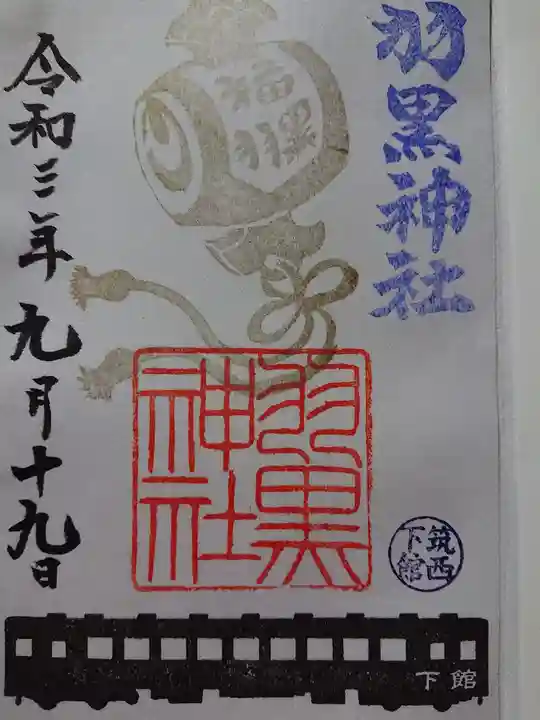 羽黒神社
福
羽黒
羽黒
神社
筑西
下館
令和三年九月十九日
下館